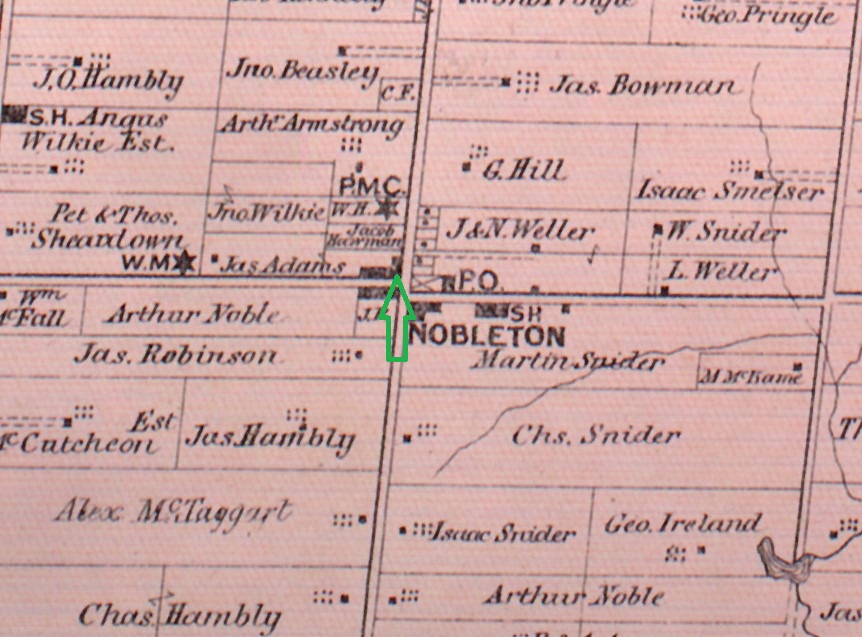 Geo. Pringle
J. O. Hambly
Jno. Beasley
C.F.
Jas. Bowman
S.H. Angus
Wilkie Est.
Arthr Armstrong
G. Hill
P.M.C.
Isaac Smelser
Pet & Thos.
Sheardown
Jno Wilkie
W.H.
Jacob
J & N. Weller
W. Snider
W.M
Jas Adams
L. Weller
P.O.
Wm
McFall
Arthur Noble
SH
NOBLETON
Jas. Robinson
Martin Snider
M McKame
Est
McCutcheon
Jas. Hambly
Chs. Snider
Alex McTaggart
Isaac Snider
Geo. Ireland
Chas. Hambly
Arthur Noble
Jas